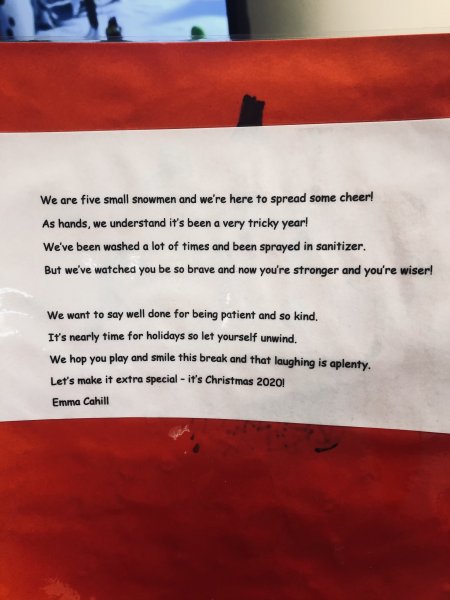 We are five small snowmen and we're here to spread some cheer!
As hands, we understand it's been a very tricky year!
We've been washed a lot of times and been sprayed in sanitizer.
But we've watched you be so brave and now you're stronger and you're wiser!
We want to say well done for being patient and so kind.
It's nearly time for holidays so let yourself unwind.
We hop you play and smile this break and that laughing is aplenty.
Let's make it extra special - it's Christmas 2020!
Emma Cahill